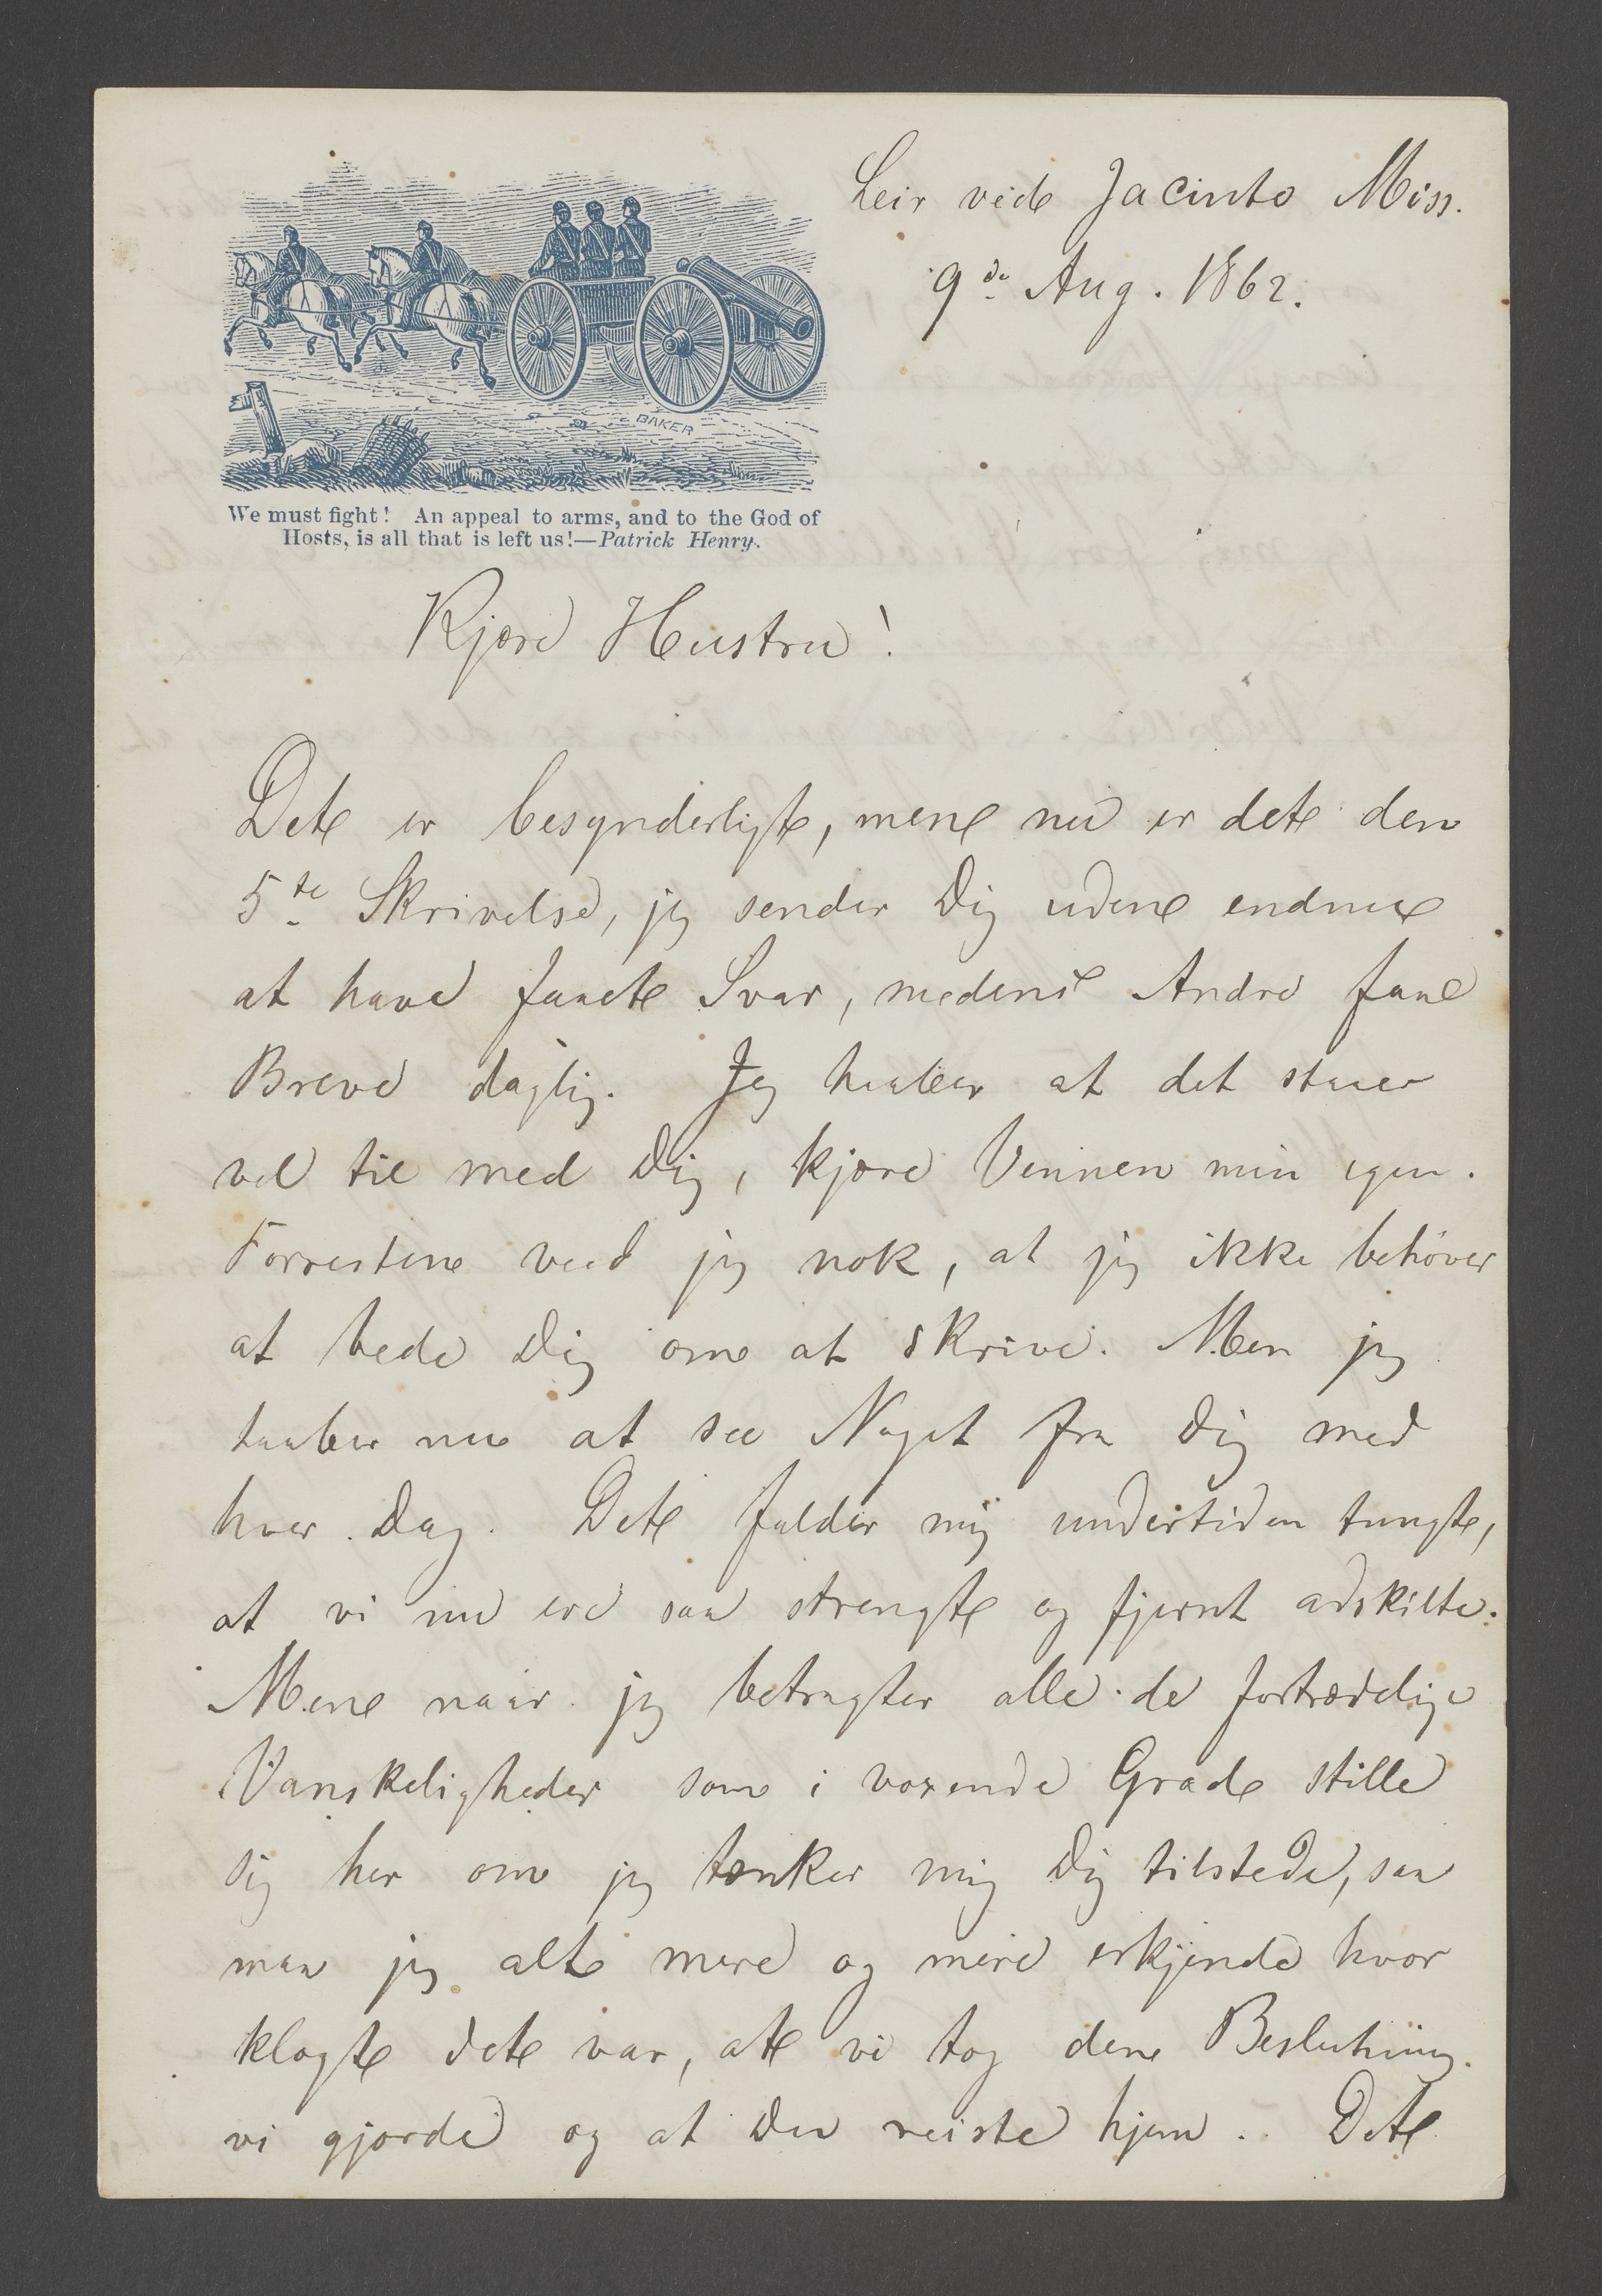 Leir ved Jacinto Miss.
9de Aug. 1862.
BAKER
We must fight! An appeal to arms, and to the God of
Hosts, is all that is left us!—Patrick Henry.
Kjære Hustru!
Det er besynderligt, men nu er det den
5te Skrivelse, jeg sender Dig uden endnu
at have faaet Svar, medens Andre faae
Breve daglig. Jeg haaber at det staaer
vel til med Dig, kjære Vennen min egen.
Forresten veed jeg nok, at jeg ikke behøver
at bede Dig om at skrive. Men jeg
haaber nu at see Noget fra Dig med
hver Dag. Det falder mig undertiden tungt,
at vi nu ere saa strengt og fjernt adskilte.
Men naar jeg betragter alle de fortrædelige
Vanskeligheder som i voxende Grad stille
sig her om jeg tænker mig Dig tilstede, saa
maa jeg alt mere og mere erkjende hvor
klogt det var, at vi tog den Beslutning
vi gjorde og at Du reiste hjem. Det